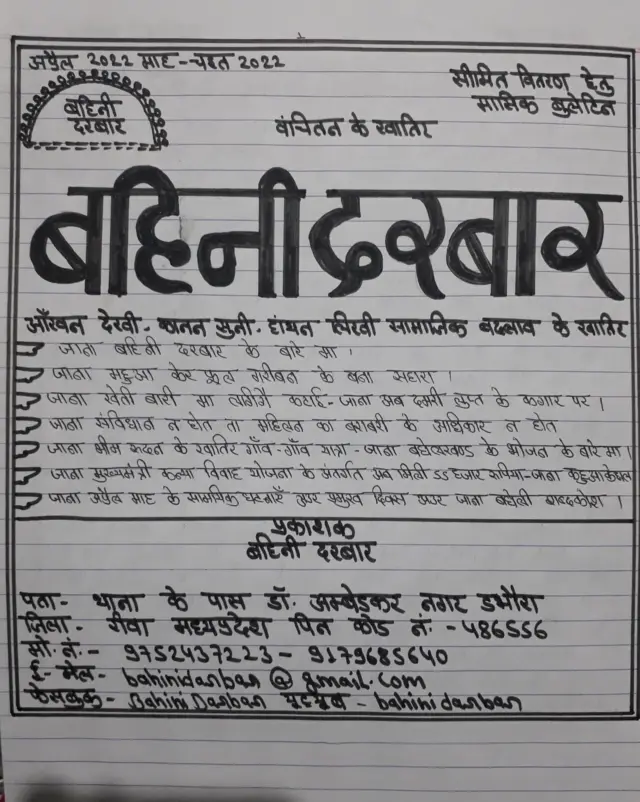 अप्रैल 2022 माह - चइत 2022
सीमित वितरण हेतु
मासिक बुलेटिन
बहिनी
दरबार
वंचितन के खातिर
बहिनी दरबार
आँखन देखी - कानन सुनी - हांथन लिखी सामाजिक बदलाव के खातिर
जाना बहिनी दरबार के बारे मा ।
जाना महुआ केर फूल गरीबन के बना सहारा ।
जाना खेती बारी मा लगिगै कटाई - जाना अब दमरी लुप्त के कगार पर ।
जाना संविधान न होत ता महिलन का बराबरी के अधिकार न होत
जाना भीम रूदन के खातिर गाँव - गाँव यात्रा - जाना बघेलखण्ड के भोजन के बारे मा ।
जाना मुख्यमंत्री कन्या विवाह योजना के अंतर्गत अब मिली 55 हजार रूपिया - जाना
जाना अप्रैल माह के सामयिक घटनाएँ अउर प्रमुख दिवस अउर जाना बघेली शब्दकोश ।
प्रकाशक
बहिनी दरबार
पता - थाना के पास डॉ. अम्बेडकर नगर डभौरा
जिला - रीवा मध्यप्रदेश पिन कोड नं. - 486556
मो. नं. - 9752437223 - 9179685640
ई - मेल - bahinidarbar @ gmail.com
फेसबुक - Bahini Darbar यूट्यूब - bahini darbar